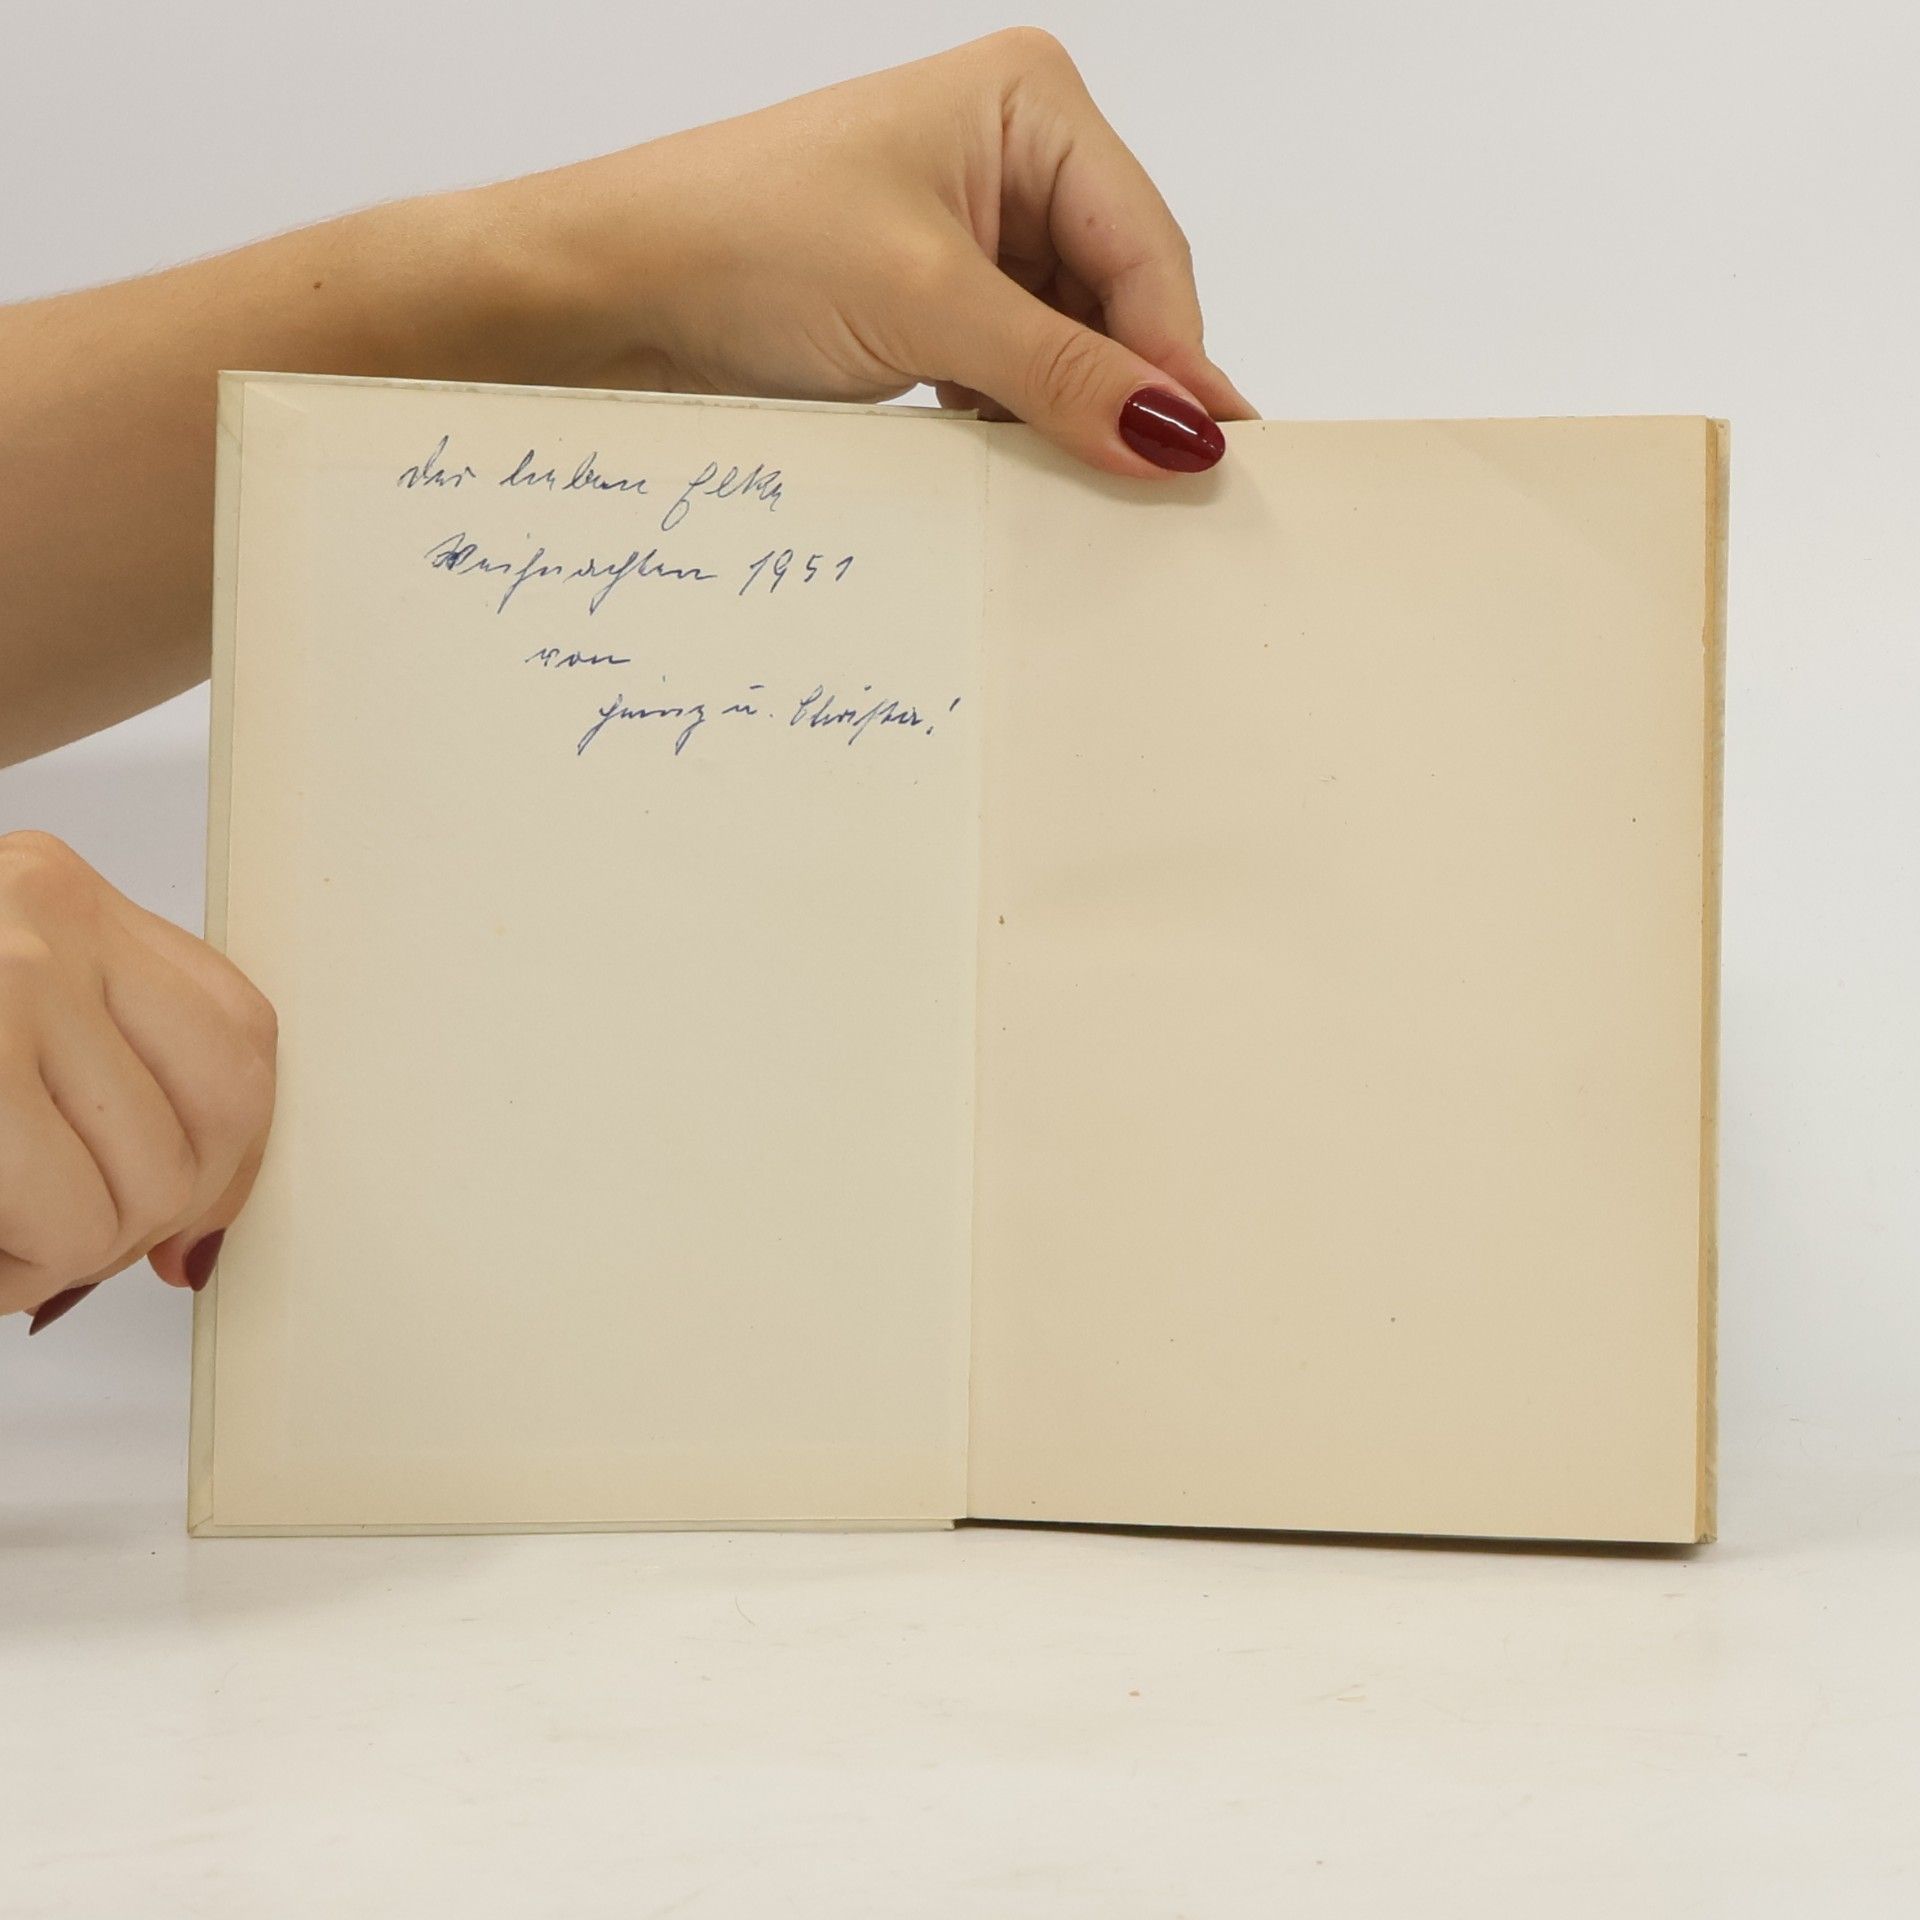 Der lieben Elke
Weihnachten 1951
von
Heinz u. Christa!